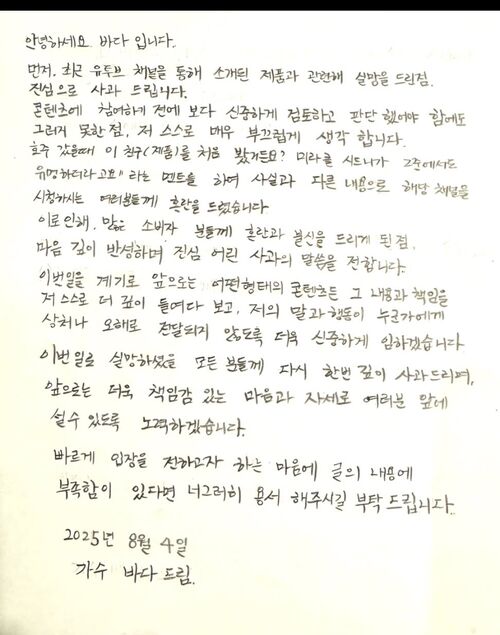 안녕하세요 바다 입니다.
먼저, 최근 유투브 채널을 통해 소개된 제품과 관련해 실망을 드린점,
진심으로 사과 드립니다.
콘텐츠에 참여하기 전에 보다 신중하게 검토하고 판단 했어야 함에도
그러지 못한점, 저 스스로 매우 부끄럽게 생각 합니다.
호주 갔을때 이 친구(제품)를 처음 봤거든요? 미라클 시드니가 그쪽에서도
유명하더라고요" 라는 멘트를 하여 사실과 다른 내용으로 해당 채널을
시청하시는 여러분들께 혼란을 드렸습니다
이로인해, 많은 소비자 분들께 혼란과 불신을 드리게 된점,
마음 깊이 반성하며 진심 어린 사과의 말씀을 전합니다.
이번일을 계기로 앞으로는 어떤형태의 콘텐츠든 그 내용과 책임을
저 스스로 더 깊이 들여다 보고, 저의 말과 행동이 누군가에게
상처나 오해로 전달되지 않도록 더욱 신중하게 임하겠습니다
이번 일로 실망하셨을 모든 분들께 다시 한번 깊이 사과드리며,
앞으로는 더욱 책임감 있는 마음과 자세로 여러분 앞에
설수 있도록 노력하겠습니다.
빠르게 입장을 전하고자 하는 마음에 글의 내용에
부족함이 있다면 너그러히 용서 해주시길 부탁 드립니다.
2025년 8월 4일
가수 바다 드림.